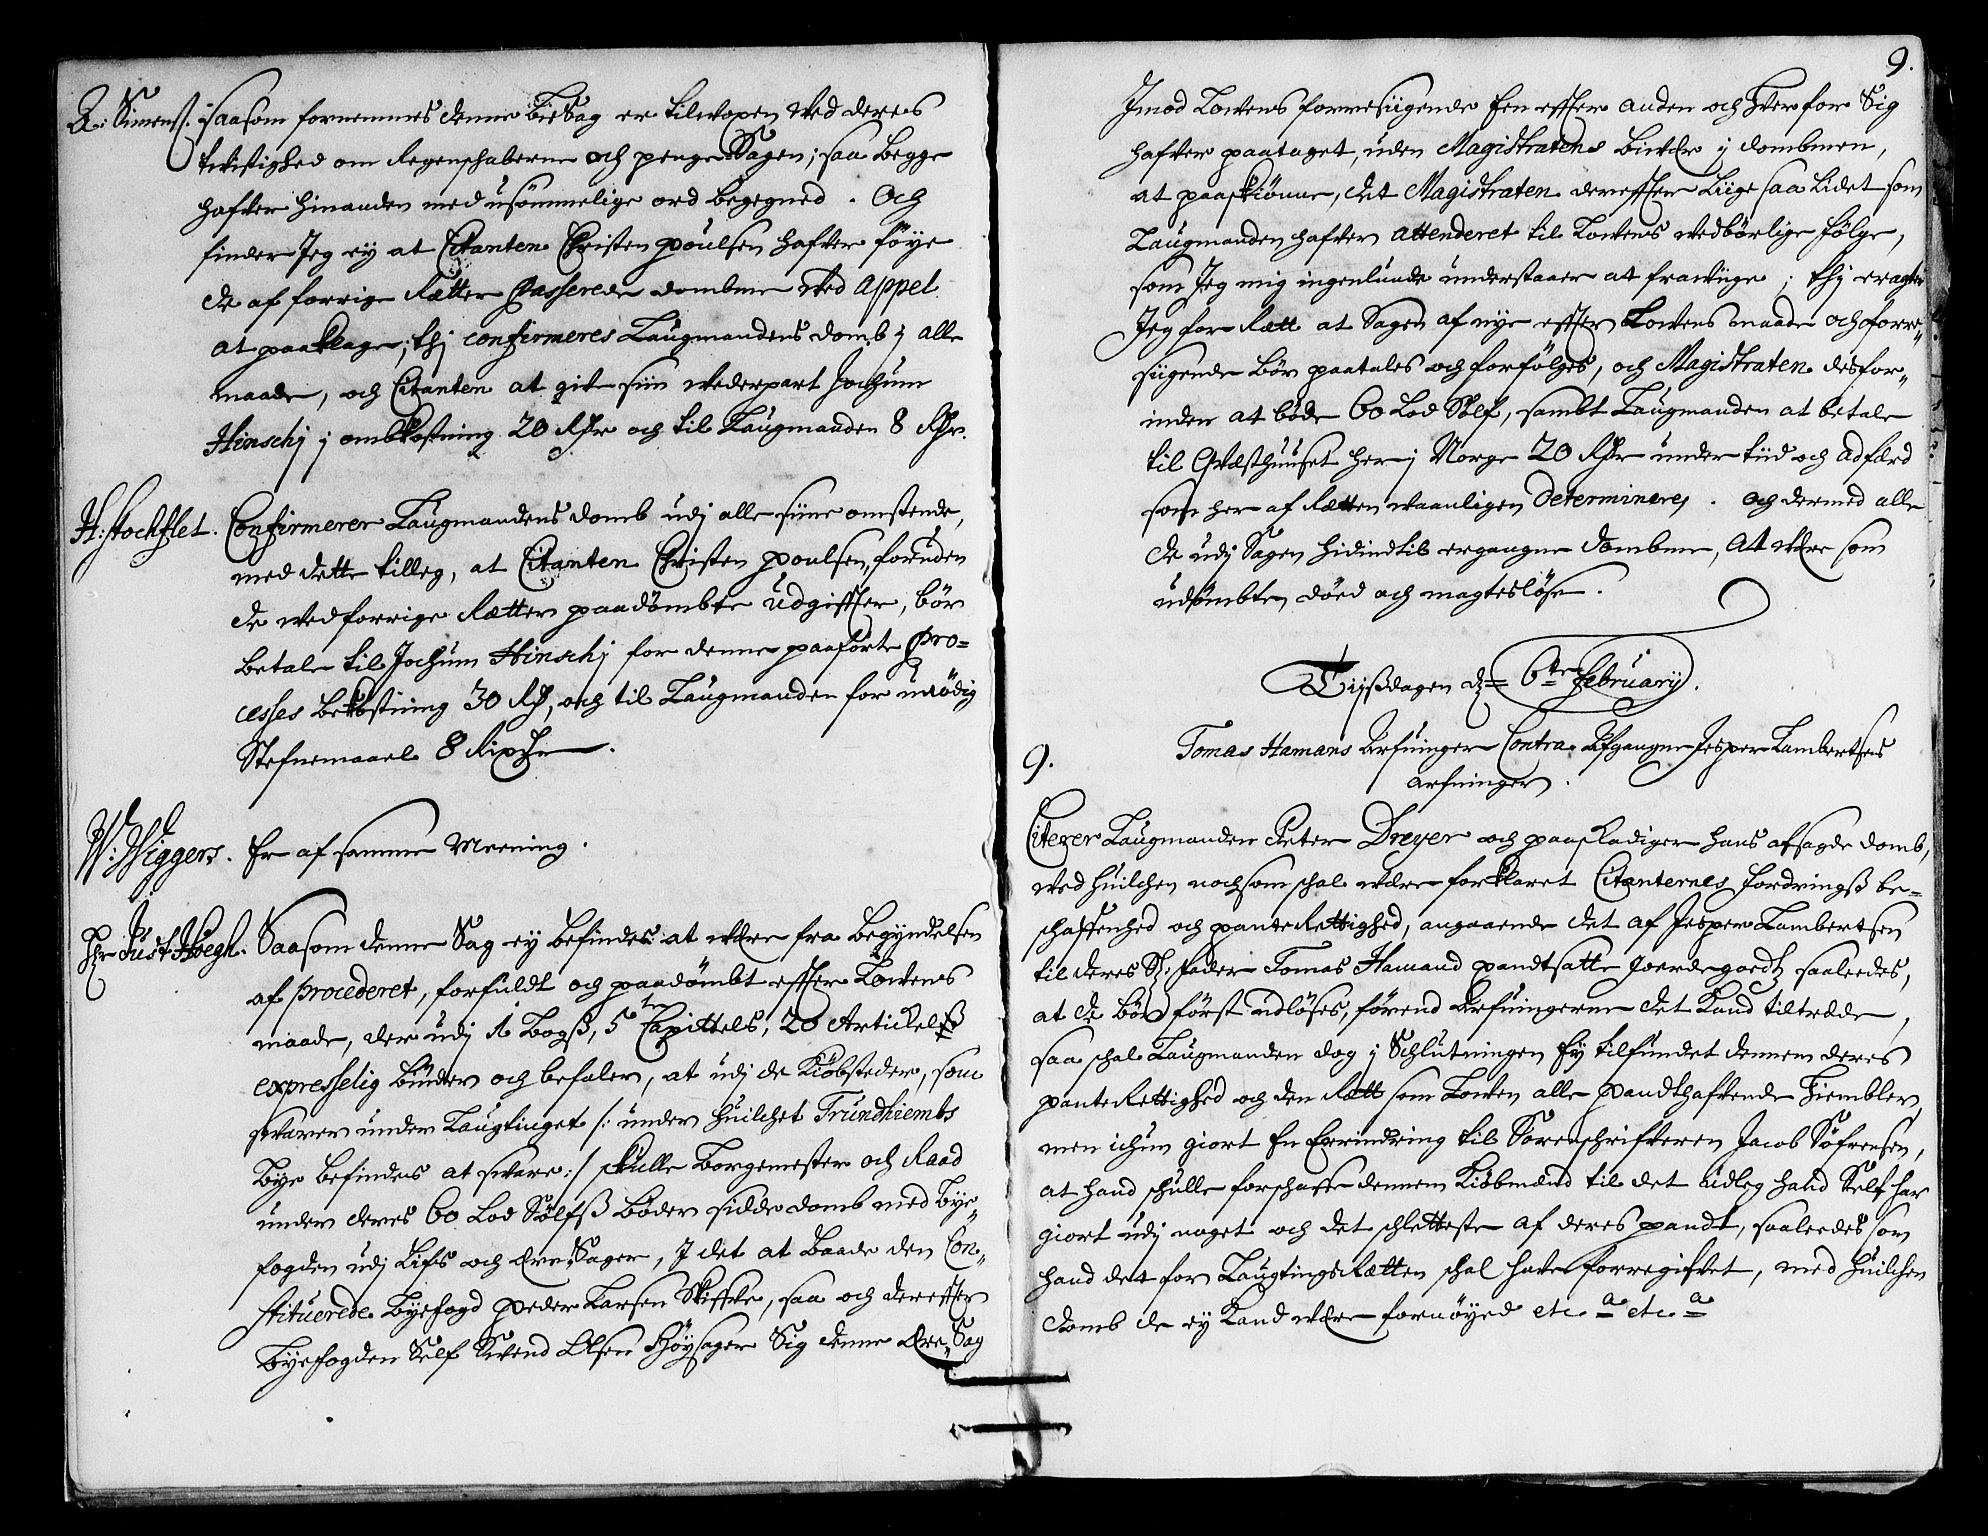 A: Simens: saasom fornemmes denne bie Sag er tilwoxen ved deres
twistighed om Regenschaberne och penge Sagen; saa begge
hafver hinanden med usömmelige ord begegned. Och
finder Jeg ey at Citanten Christen poulsen hafver föye
de af forrige Rætter Passerede dombme ved Appel
at paaklage; thj confirmeres Laugmandens domb j alle
maade, och Citanten at give sin wederpart Jochum
Hinschj j ombkostning 20 Rdr och til Laugmanden 8 Rdr.
H: stockflet. Confirmerer Laugmandens domb udj alle siine omstende,
med dette tilleg, at Citanten Christen poulsen, foruden
de ved forrige Rætter paadömbte udgiffter, bör
betale til Jochum Hinschj for denne paaförte Pro-
cesses bekostning 30 Rdr, och til Laugmanden for unödig
Stefnemaal 8 Rixdr.
W: Wiggers. Er af samme Meening.
Hr Just Höegh. Saasom denne Sag ey befindes at være fra begyndelsen
af procederet, forfuldt och paadömbt effter Lowens
maade, der udj 1 Bogs, 5te Capittels, 20 Articless
expresselig binder och befaler, at udj de Kiöbsteder, som
svarer under Laugtinget /: under huilchet Trundhiembs
Bye befindes at svare :/ skulle Borgemester och Raad
under deres 60 Lod Sölfs böder sidde domb med bye„
fogden udj Lifs och Ære Sager, J det at baade den Con„
stituerede Byefogd peder Larsen Skiffte, saa och dereffter
Byefogden Self Svend Olsen Höysager Sig denne Ære„Sag
9.
Jmod Lowens forresiigende Een effter anden och hver for Sig
hafver paataget, uden Magistratens biveær j dombmen,
at paaskiönne, det Magistraten dereffter liige saa lidet som
Laugmanden hafver attenderet til Lowens vedbörlige fölge,
som Jeg mig ingenlunde understaaer at frawiige; thj eragter
Jeg for Rætt at Sagen af nye effter Lowens maade och forre„
siigende bör paatales och forfölges, och Magistraten desfor„
inden at böde 60 Lod Sölf, sambt Laugmanden at betale
til Qvæsthuuset her j Norge 20 Rdr under tiid och adfærd
som her af Rætten waanligen determineres. och dermed alle
de udj Sagen hidindtil ergangne dombme, at være som
udömbte, död och magteslöse.
Tiissdagen d= 6te February.
9. Tomas Hamans Arfuinger Contra Afgangne Jesper Lambertses
arfuinger.
Citerer Laugmanden Peter Dreyer och paaskadiger hans afsagde domb,
ved huilchen nochsom schal være forklaret Citanternes fordrings be-
schaffenhed och pante Rettighed, angaaende det af Jesper Lambertsen
til deres Sl: fader Tomas Hamand pandtsatte jordegodtz saaledes,
at de bör först udlöses, förend Arfuingerne det kand tiltræde,
saa schal Laugmanden dog j Schlutningen Ey tilfundet dennem deres
pante Rettighed och den Rætt som Lowen alle pandthafvende hiembler,
men ichun giort En Erindring til Sorenschrifveren Jacob Söfrensen,
at hand schulle forschaffe dennem Kiöbmænd til det udleg hand Self har
giort udj noget och det schletteste af deres pandt, saaledes som
hand det for Laugtings Rætten schal have forregifvet, med huilchen
domb de ey kand være fornöyed etc.a etc.a